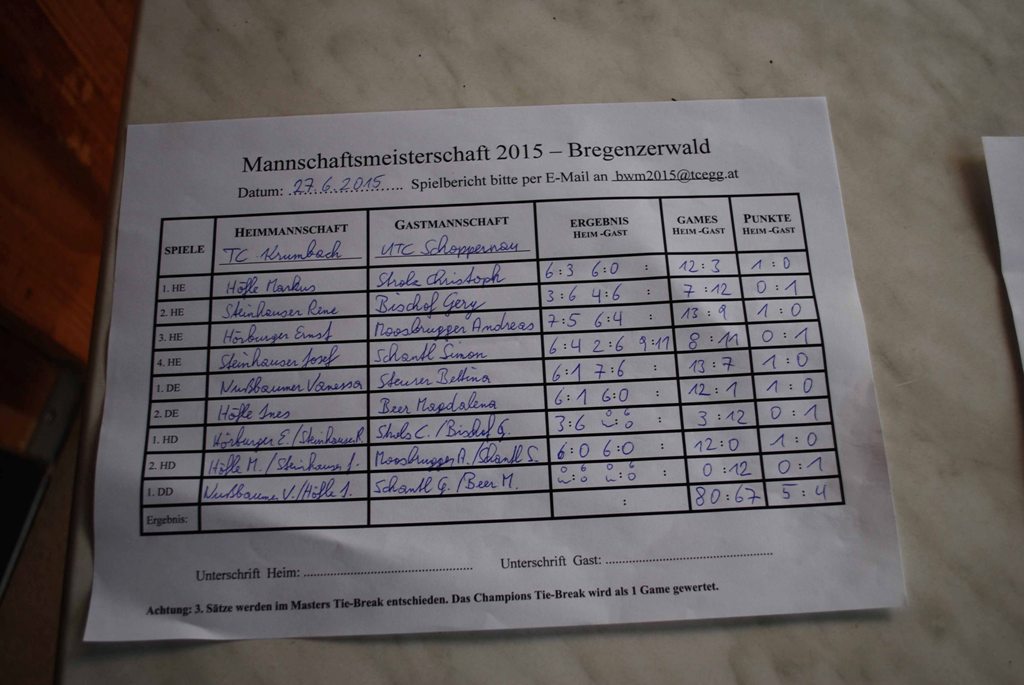 Mannschaftsmeisterschaft 2015 – Bregenzerwald
Datum: 27.6.2015 Spielbericht bitte per E-Mail an bwm2015@tcegg.at
SPIELE HEIMMANNSCHAFT GASTMANNSCHAFT ERGEBNIS HEIM -GAST GAMES HEIM -GAST PUNKTE HEIM - GAST
TC Krumbach UTC Schoppernau
1. HE Höfle Markus Strols Christoph 6:3 6:0 : 12:3 1:0
2. HE Steinhauser Rene Bischof Gery 3:6 4:6 : 7:12 0:1
3. HE Hörburger Ernst Moosbrugger Andreas 7:5 6:4 : 13:9 1:0
4. HE Steinhauser Josef Schantl Simon 6:4 2:6 9:11 8:11 0:1
1. DE Nußbaumer Vanessa Steurer Bettina 6:1 7:6 : 13:7 1:0
2. DE Höfle Ines Beer Magdalena 6:1 6:0 : 12:1 1:0
1. HD Hörburger E./Steinhauser R. Strols C./Bischof G. 3:6 0:6 3:12 0:1
2. HD Höfle M./Steinhauser J. Moosbrugger A./Schantl S. 6:0 6:0 : 12:0 1:0
1. DD Nußbaumer V./Höfle I. Schantl G./Beer M. 0:6 0:6 : 0:12 0:1
w:o w:o
Ergebnis: : 80:67 5:4
Unterschrift Heim: Unterschrift Gast:
Achtung: 3. Sätze werden im Masters Tie-Break entschieden. Das Champions Tie-Break wird als 1 Game gewertet.